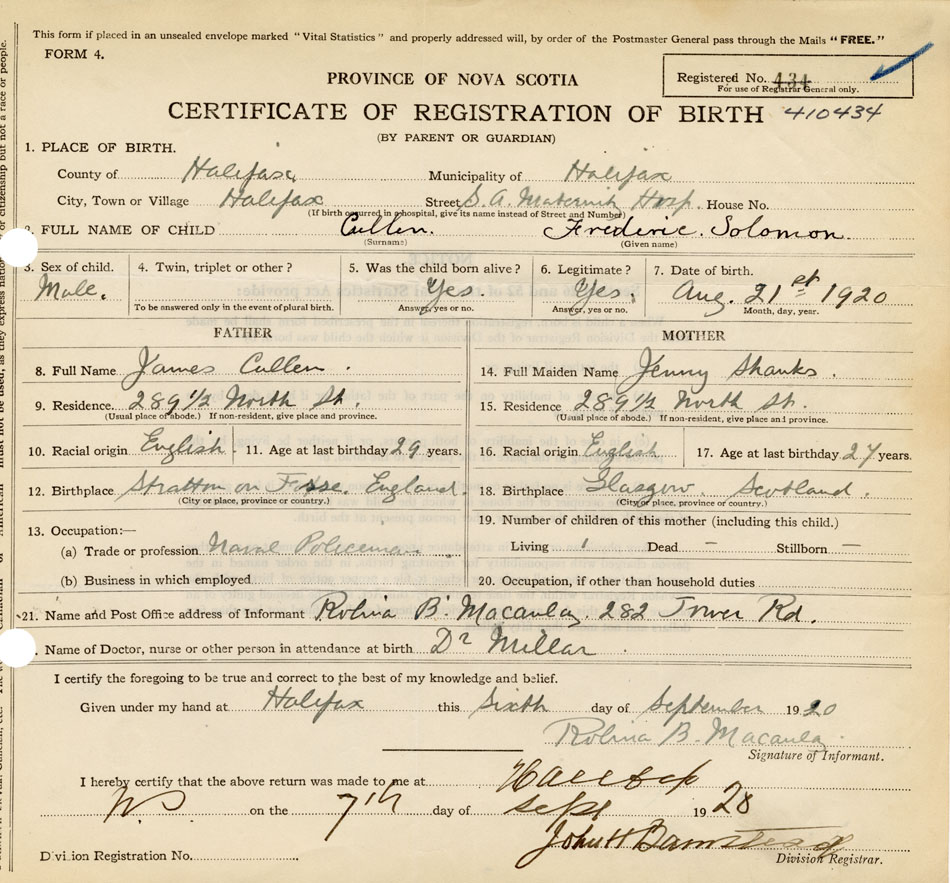 This form if placed in an unsealed envelope marked "Vital Statistics" and properly addressed will, by order of the Postmaster General pass through the Mails "FREE."
FORM 4.
Registered No. 434
For use of Registrar General only.
PROVINCE OF NOVA SCOTIA
CERTIFICATE OF REGISTRATION OF BIRTH 410434
(BY PARENT OR GUARDIAN)
1. PLACE OF BIRTH.
County of Halifax Municipality of Halifax
City, Town or Village Halifax Street S. A. Maternity Hosp. House No.
(If birth occurred in a hospital, give its name instead of Street and Number)
2. FULL NAME OF CHILD Cullen. Frederic. Solomon.
(Surname) (Given name)
3. Sex of child. 4. Twin, triplet or other? 5. Was the child born alive? 6. Legitimate? 7. Date of birth.
Male. Yes. Yes. Aug. 21st 1920
To be answered only in the event of plural birth. Answer, yes or no. Answer, yes or no. Month, day, year.
FATHER MOTHER
8. Full Name James Cullen. 14. Full Maiden Name Jenny Shanks.
9. Residence 289 1/2 North St. 15. Residence 289 1/2 North St.
(Usual place of abode.) If non-resident, give place and province. (Usual place of abode.) If non-resident, give place and province.
10. Racial origin English. 11. Age at last birthday 29 years. 16. Racial origin English 17. Age at last birthday 27 years.
12. Birthplace Stratton on Fosse. England. 18. Birthplace Glasgow. Scotland.
(City or place, province or country.) (City or place, province or country.)
13. Occupation:— 19. Number of children of this mother (including this child.)
(a) Trade or profession Naval Policeman Living 1 Dead — Stillborn —
(b) Business in which employed 20. Occupation, if other than household duties
21. Name and Post Office address of Informant Rolina B. Macaulay 282 Tower Rd.
Name of Doctor, nurse or other person in attendance at birth Dr Millar
I certify the foregoing to be true and correct to the best of my knowledge and belief.
Given under my hand at Halifax this sixth day of September 1920
Rolina B. Macaulay
Signature of Informant.
I hereby certify that the above return was made to me at Halifax
NS on the 7th day of Sept 1920
John H Barnstead
Division Registrar.
Division Registration No.